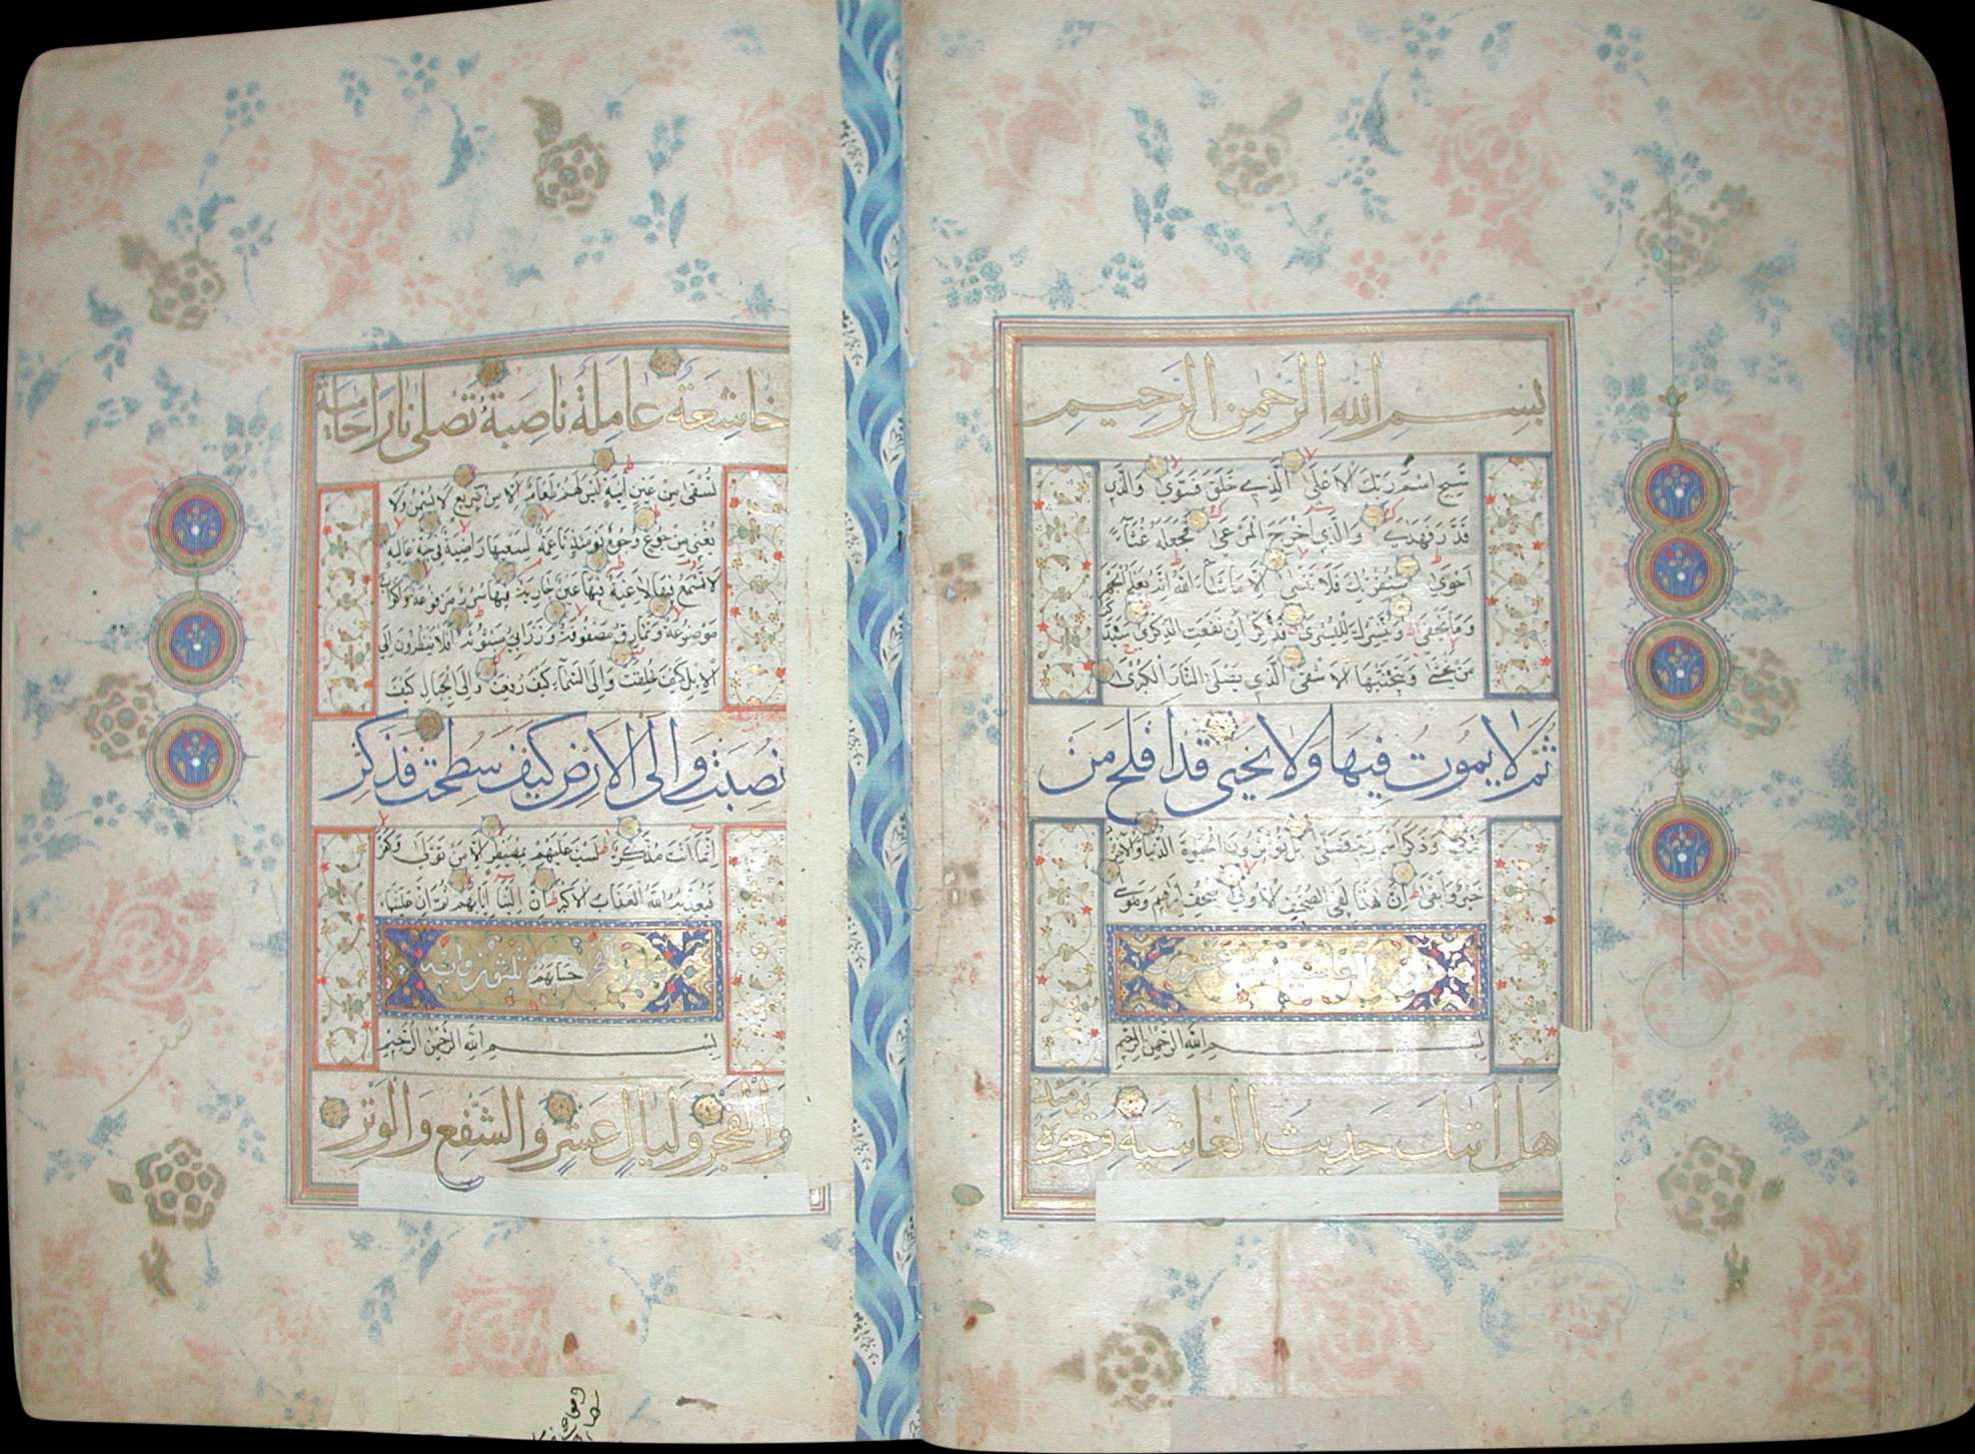 بسم الله الرحمن الرحيم
سبح اسم ربك الاعلى الذي خلق فسوى والذي
قدر فهدى والذي اخرج المرعى فجعله غثاء
احوى سنقرئك فلا تنسى الا ما شاء الله انه يعلم الجهر
وما يخفى ونيسرك لليسرى فذكر ان نفعت الذكرى سيذكر
من يخشى ويتجنبها الاشقى الذي يصلى النار الكبرى
ثم لا يموت فيها ولا يحيى قد افلح من
تزكى وذكر اسم ربه فصلى بل تؤثرون الحيوة الدنيا والاخرة
خير وابقى ان هذا لفي الصحف الاولى صحف ابرهيم وموسى
الغاشية
بسم الله الرحمن الرحيم
هل اتيك حديث الغاشية وجوه يومئذ
خاشعة عاملة ناصبة تصلى نارا حامية
تسقى من عين انية ليس لهم طعام الا من ضريع لا يسمن ولا
يغنى من جوع وجوه يومئذ ناعمة لسعيها راضية في جنة عالية
لا تسمع فيها لاغية فيها عين جارية فيها سرر مرفوعة واكواب
موضوعة ونمارق مصفوفة وزرابي مبثوثة افلا ينظرون الى
الابل كيف خلقت والى السماء كيف رفعت والى الجبال كيف
نصبت والى الارض كيف سطحت فذكر
انما انت مذكر لست عليهم بمصيطر الا من تولى وكفر
فيعذبه الله العذاب الاكبر ان الينا ايابهم ثم ان علينا
حسابهم
بسم الله الرحمن الرحيم
والفجر وليال عشر والشفع والوتر